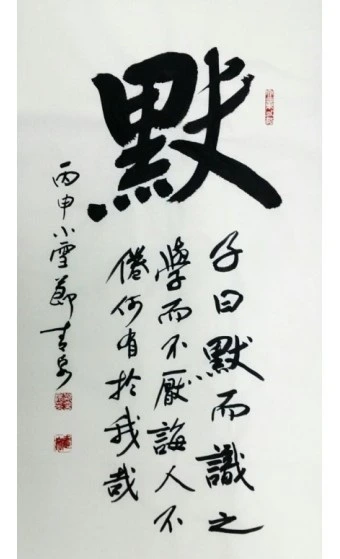 默
子曰默而識之
學而不厭誨人不
倦何有於我哉
丙申小雪節青泉